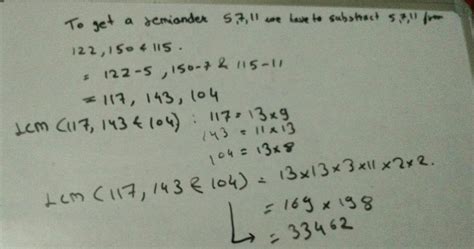 To get a remiander 5,7,11 we have to substract 5,7,11 from
122, 150 & 115.
= 122-5, 150-7 & 115-11
= 117, 143, 104
Lcm (117, 143 & 104) : 117 = 13×9
143 = 11×13
104 = 13×8
Lcm (117, 143 & 104) = 13×13×3×11×2×2.
= 169 × 198
= 33462